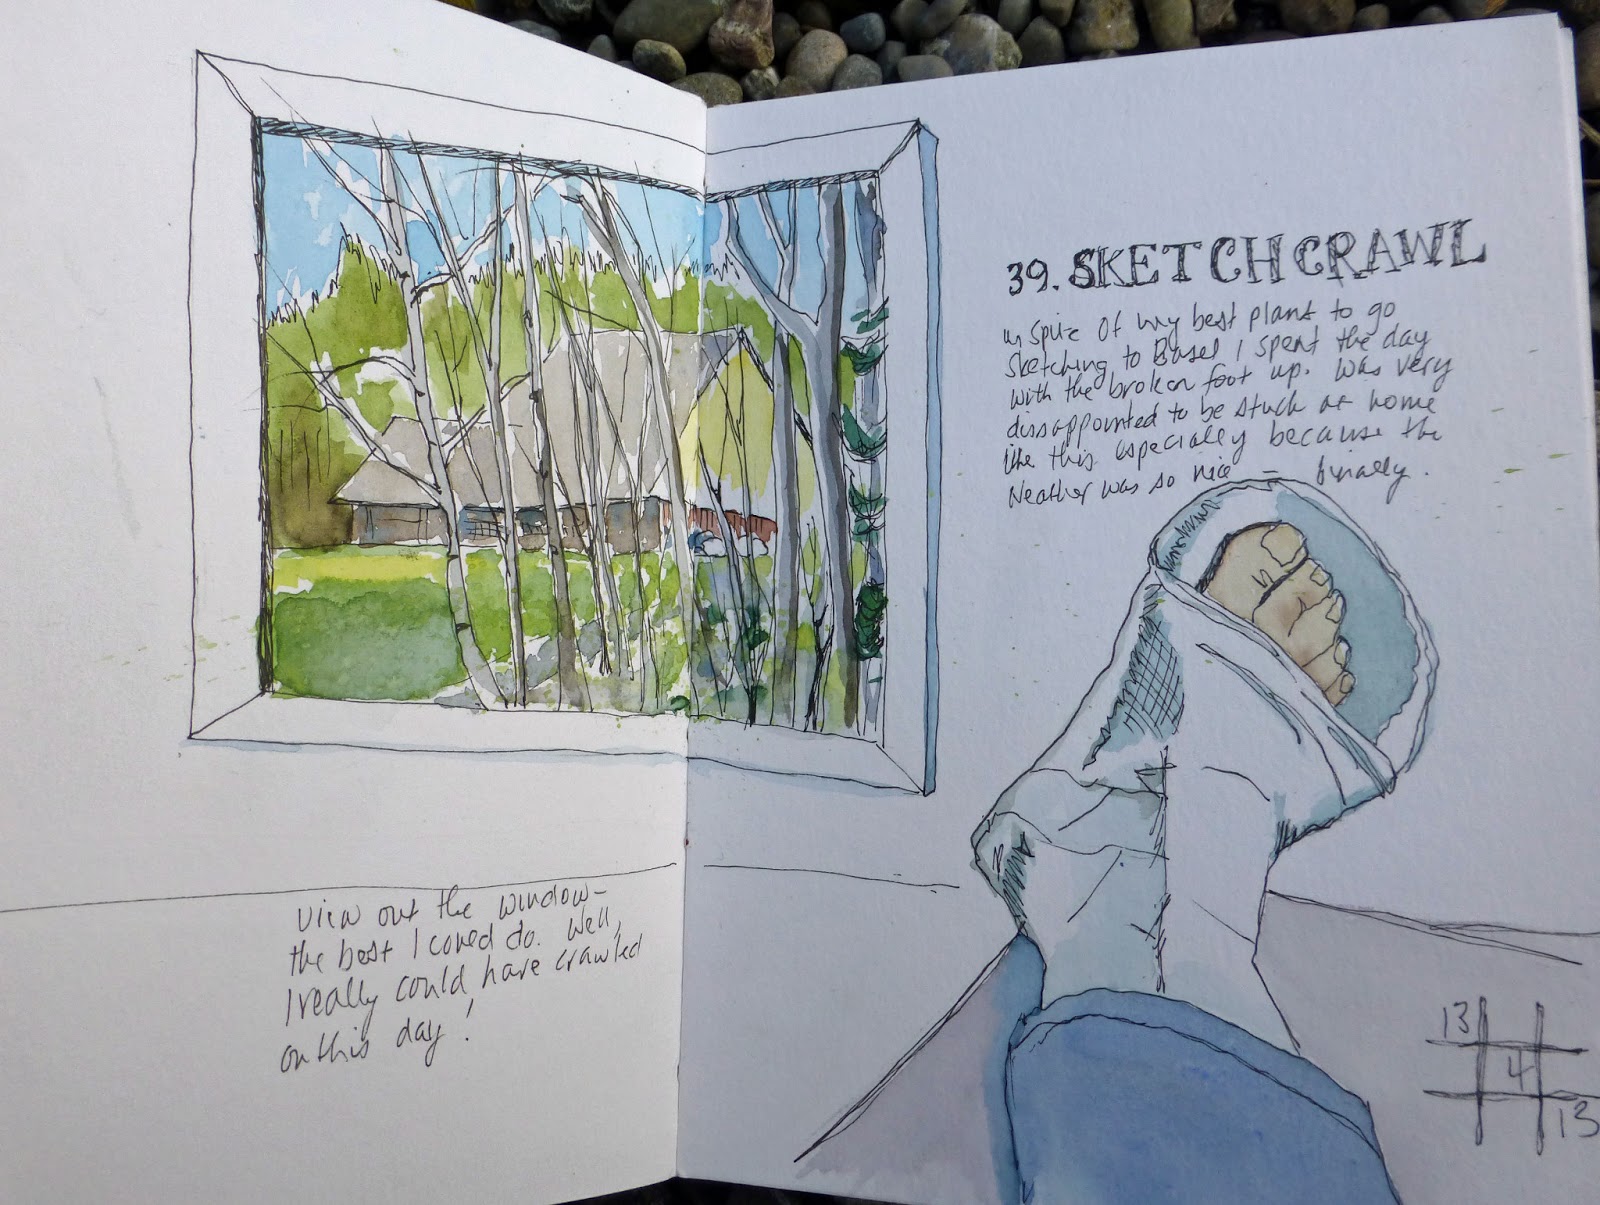 view out the window -
the best I coued do. Well,
I really could have crawled
on this day!
39. SKETCHCRAWL
in spite of my best plans to go
sketching to Basel I spent the day
with the broken foot up. Was very
dissappointed to be stuck at home
like this especially because the
Weather was so nice - finally.
13
4
13